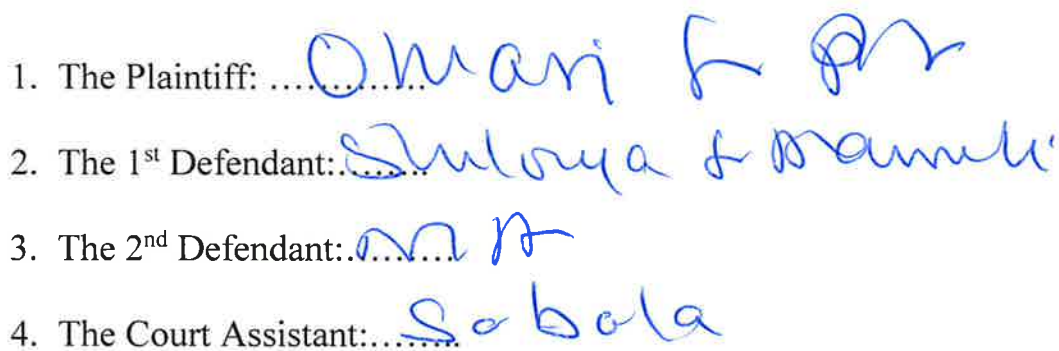 1. The Plaintiff: .............. Omari for Plt
2. The 1st Defendant:......... for
3. The 2nd Defendant:......... N A
4. The Court Assistant:......... Sabala